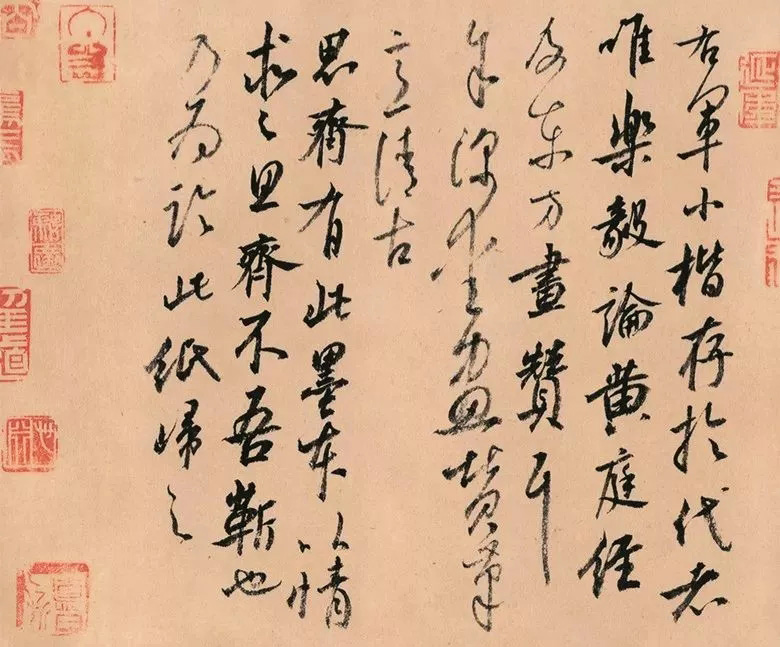 右軍小楷存於代者
唯樂毅論黃庭經
及東方畫贊耳
余深愛畫贊筆
意清古
思齊有此墨本以情
求之思齊不吾靳也
乃為臨此紙歸之